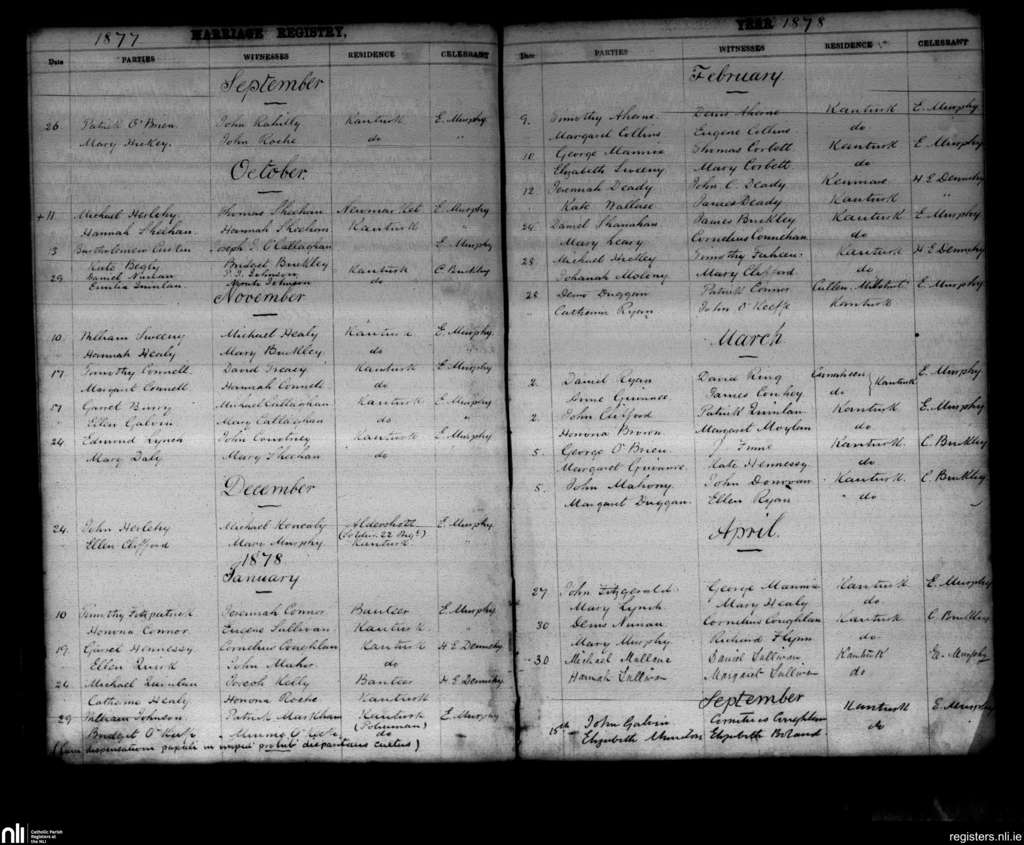 1877 MARRIAGE REGISTRY,
Date PARTIES WITNESSES RESIDENCE CELEBRANT
September
26 Patrick O'Brien John Kahilly Kanturk E. Murphy
Mary Hickey. John Roche do "
October.
+11 Michael Herlehy Thomas Sheehan Newmarket E. Murphy
Hannah Sheehan Hannah Sheehan Kanturk "
13 Bartholomew Curtin Joseph J. O'Callaghan E. Murphy
Kate Begly Bridget Buckley
29 Daniel Nunan P. J. Johnson Kanturk C. Buckley
Emilia Quinlan Johnson do
November
10 William Sweeny Michael Healy Kanturk E. Murphy
Hannah Healy Mary Buckley do
17 Timothy Connell David Treacy Kanturk E. Murphy
Margaret Connell Hannah Connell do
17 Garret Barry Michael Callaghan Kanturk E. Murphy
Ellen Galvin Mary Callaghan do "
24 Edmond Lynch John Courtney Kanturk E. Murphy
Mary Daly Mary Sheehan do
December
24. John Herlehy Michael Kenealy Aldershott E. Murphy
Ellen Clifford Mary Murphy (Soldier 22 Regt) Kanturk "
1878
January
10 Timothy Fitzpatrick Jeremiah Connor Banteer E. Murphy
Honora Connor Eugene Sullivan Kanturk "
19. Garret Hennessy Cornelius Coughlan Kanturk H E Dennehy
Ellen Quirk John Maher do
26 Michael Quinlan Joseph Kelly Banteer H E Dennehy
Catherine Healy Honora Roche Kanturk
29 William Johnson Patrick Markham Kanturk E. Murphy
(Policeman)
Bridget O'Keefe Minnie O'Keefe do
(Cum dispensatione papali in disparitatis cultus)
YEAR 1878
Date PARTIES WITNESSES RESIDENCE CELEBRANT
February
9. Timothy Aherne Denis Aherne Kanturk E. Murphy
Margaret Collins Eugene Collins do
10 George Mannix Thomas Corbett Kanturk E Murphy
Elizabeth Sweeny Mary Corbett do
12 Jeremiah Deady John C. Deady Kenmare H E Dennehy
Kate Wallace James Deady Kanturk "
24. Daniel Shanahan James Buckley Kanturk E. Murphy
Mary Leary Cornelius Counehan do
28 Michael Hickey Timothy Kanturk H E Dennehy
Johanah Molony Mary Clifford do
28 Denis Duggan Patrick Connor Cullen Millstreet E. Murphy
Catherine Ryan John O'Keeffe Kanturk
March
2. Daniel Ryan David Ring Kanturk E. Murphy
Anne Guinane James Conhoy do
2. John Clifford Patrick Quinlan Kanturk E. Murphy
Honora Brown Margaret Moylan do
5. George O'Brien J Kanturk C. Buckley
Margaret Guinane Kate Hennessy do
5. John Mahony John Donovan Kanturk C. Buckley
Margaret Duggan Ellen Ryan " do
April.
27 John Fitzgerald George Mannix Kanturk E. Murphy
Mary Lynch Mary Healy do
30 Denis Nunan Cornelius Coughlan Kanturk C. Buckley
Mary Murphy Richard Flynn do
30 Michael Mallone Daniel Sullivan Kanturk E. Murphy
Hannah Sullivan Margaret Sullivan do
September
15th John Galvin Cornelius Coughlan Kanturk E. Murphy
Elizabeth Elizabeth Boland do
nli Catholic Parish Registers at the NLI
registers.nli.ie